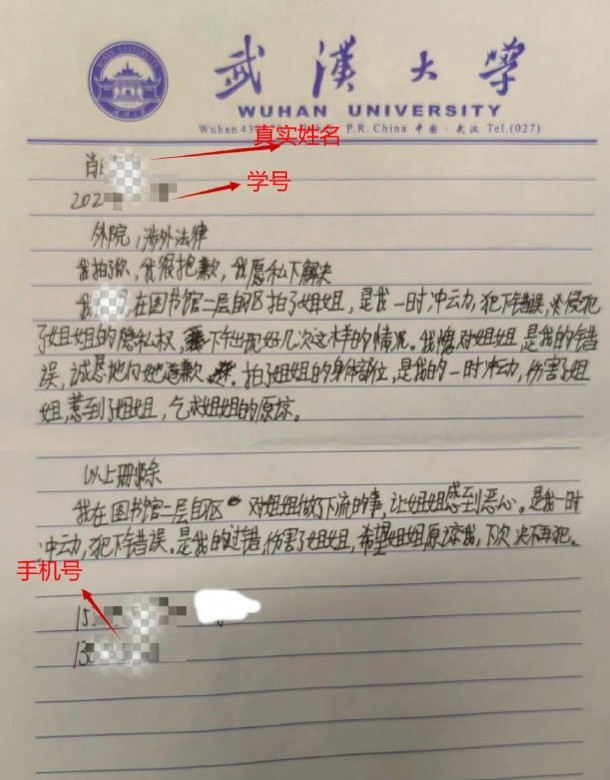 武漢大學
WUHAN UNIVERSITY
Wuhan 43 P.R. China 中国·武汉 Tel.(027)
真实姓名
肖
202
学号
外院,涉外法律
我拍了你,我很抱歉,我愿私下解决
我 ,在图书馆二层自区拍了姐姐,是我一时冲云力,犯下错误,侵犯
了姐姐的隐私权,下午出现好几次这样的情况。我愧对姐姐,是我的错
误,诚恳地向她道歉。拍了姐姐的身体部位,是我的一时冲动,伤害了姐
姐,惹到了姐姐,乞求姐姐的原谅。
以上删除
我在图书馆二层自区 对姐姐做了下流的事,让姐姐感到恶心。是我一时
冲云力,犯下错误。是我的过错,伤害了姐姐,希望姐姐原谅我,下次决不再犯。
手机号
15
13